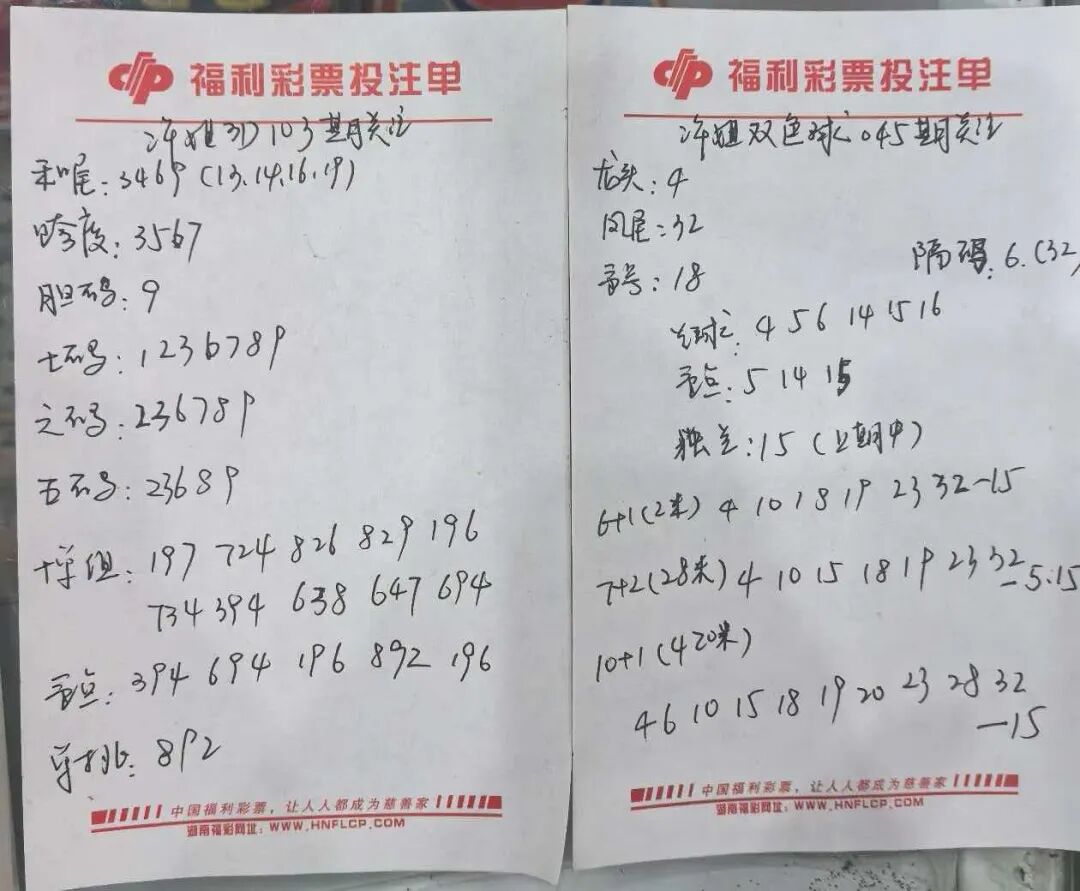 福利彩票投注单
海姐3D103期关注
和尾:3469(13.14.16.19)
跨度:3567
胆码:9
七码:1236789
六码:236789
五码:23689
十单组:197 724 826 829 196
734 394 638 647 694
重点:394 694 196 892 196
单挑:892
中国福利彩票,让人人都成为慈善家
湖南福彩网址:WWW.HNFLCP.COM
福利彩票投注单
海姐双色球045期关注
龙头:4
凤尾:32
重号:18
隔码:6.(32)
兰球:4 5 6 14 15 16
重点:5 14 15
独兰:15(上期中)
6+1(2米) 4 10 18 19 23 32-15
7+2(28米) 4 10 15 18 19 23 32-5.15
10+1(420米)
4 6 10 15 18 19 20 23 28 32
-15
中国福利彩票,让人人都成为慈善家
湖南福彩网址:WWW.HNFLCP.COM